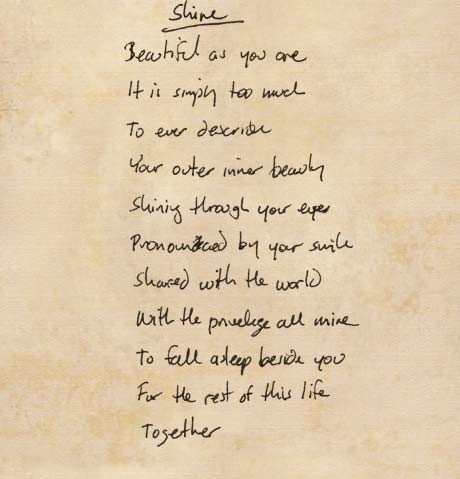 Shine
Beautiful as you are
It is simply too much
To ever describe
Your outer inner beauty
Shining through your eyes
Pronounced by your smile
Shared with the world
With the privelige all mine
To fall asleep beside you
For the rest of this life
Together